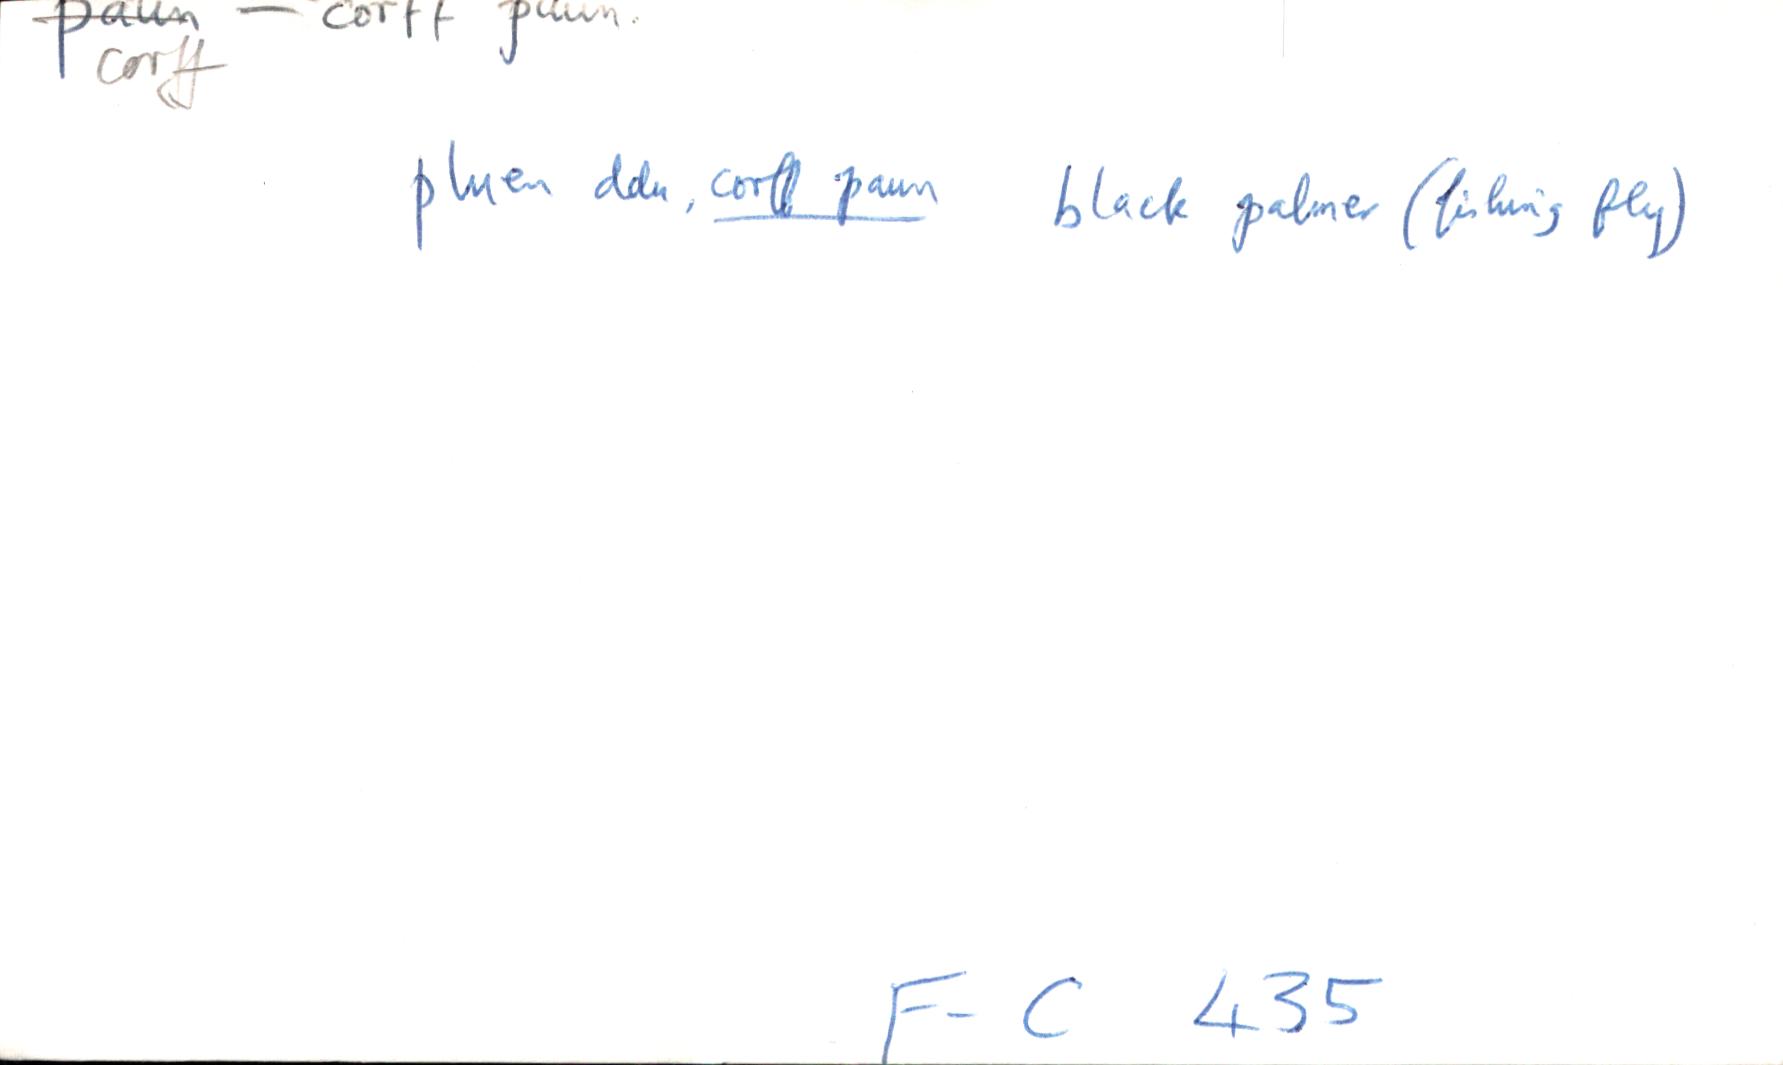 paun — corff paun.
corff
pluen ddu, corff paun black palmer (fishing fly)
F-C 435